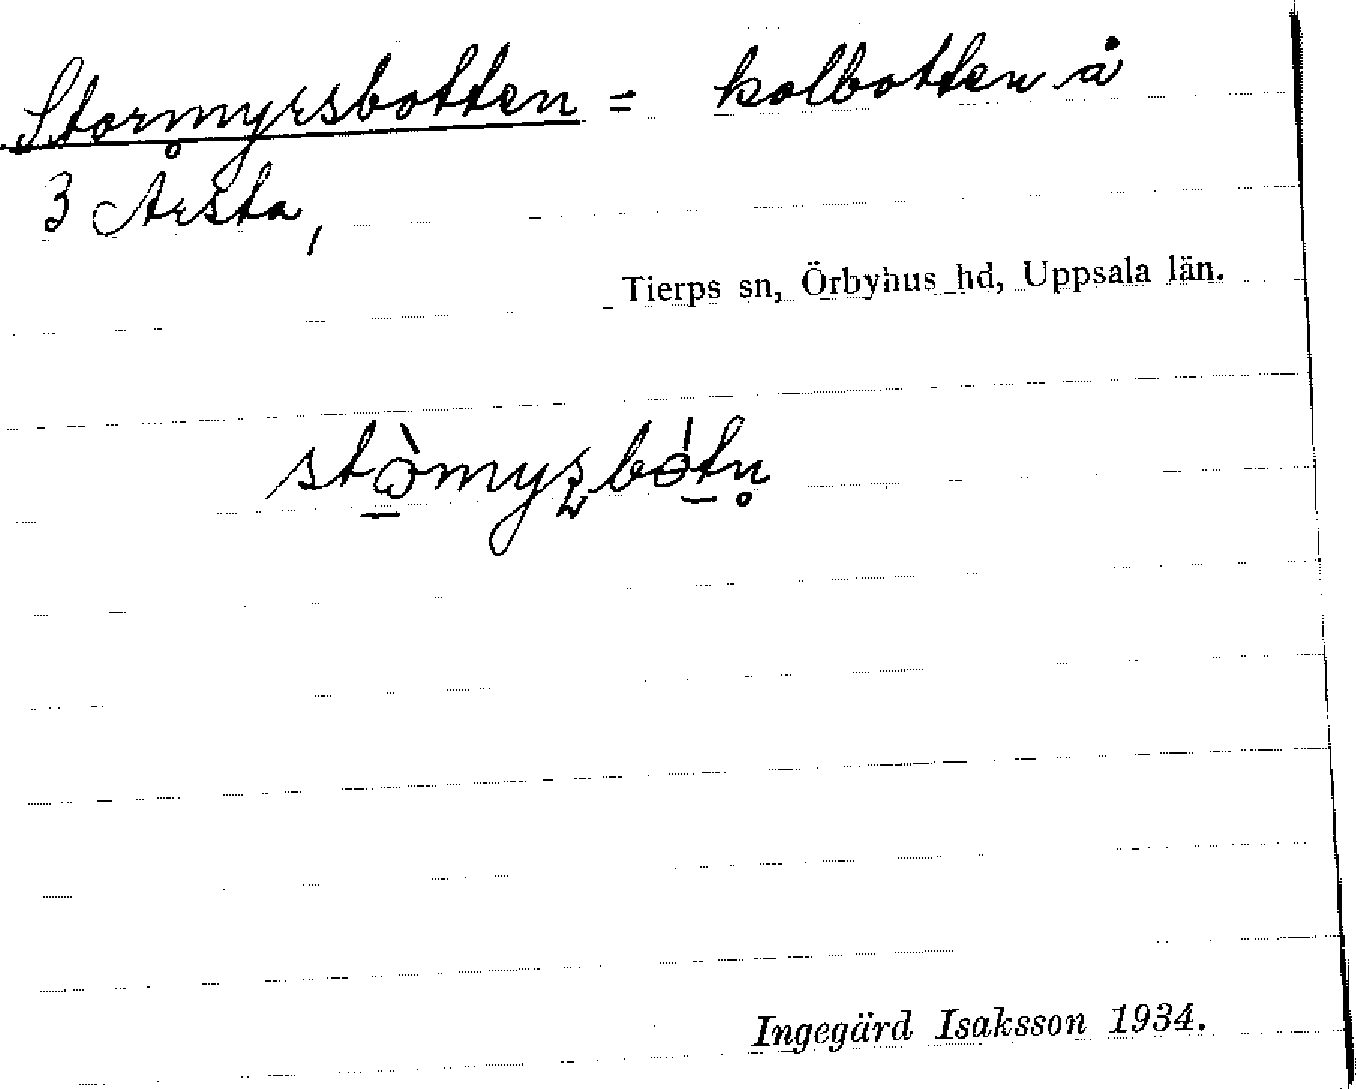 Stormyrsbotten = kolbotten å
3 Årsta,
Tierps sn, Örbyhus hd, Uppsala län.
Ingegärd Isaksson 1934.